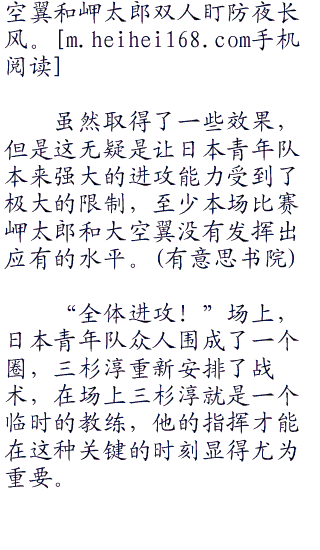 空翼和岬太郎双人盯防夜长
风。[m.heihei168.com手机
阅读]
虽然取得了一些效果，
但是这无疑是让日本青年队
本来强大的进攻能力受到了
极大的限制，至少本场比赛
岬太郎和大空翼没有发挥出
应有的水平。(有意思书院)
“全体进攻！”场上，
日本青年队众人围成了一个
圈，三杉淳重新安排了战
术，在场上三杉淳就是一个
临时的教练，他的指挥才能
在这种关键的时刻显得尤为
重要。